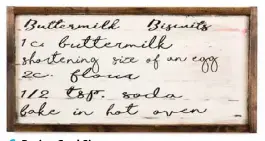 Buttermilk Biscuits
1 c. buttermilk
shortening size of an egg
2c. flour
1/2 tsp. soda
bake in hot oven